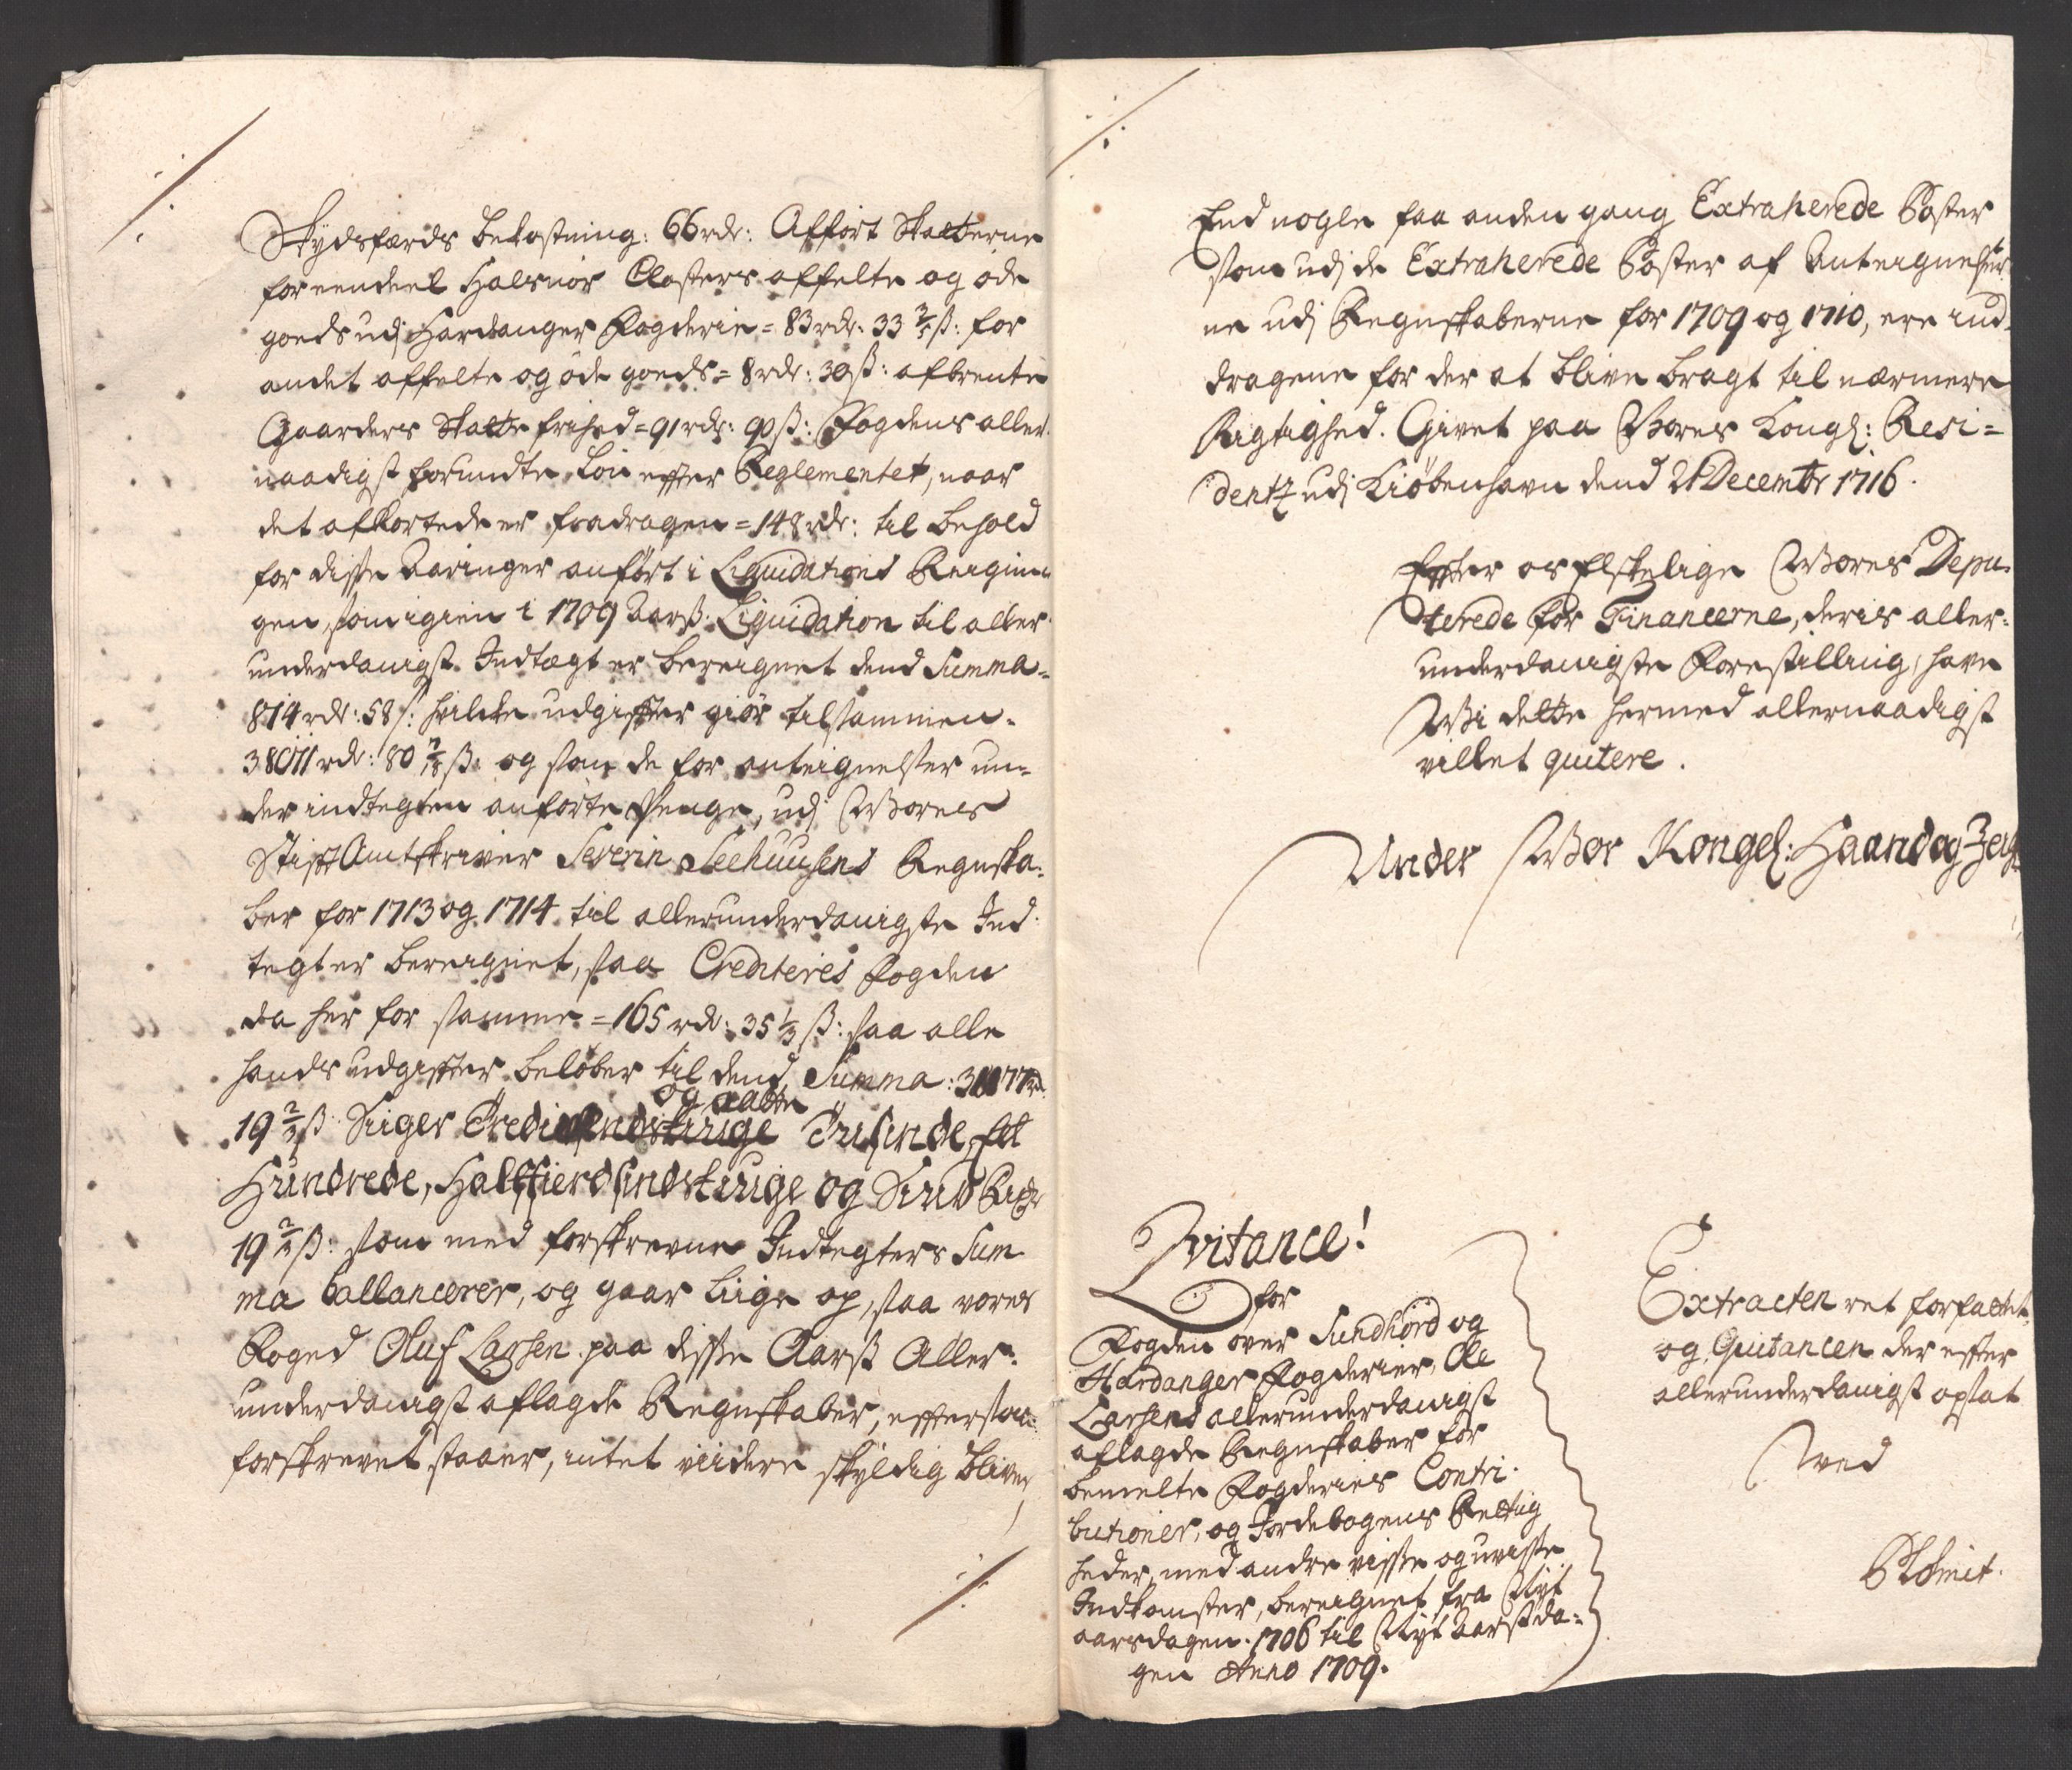 Skydsfærds bekostning: 66 rdr: Affört Skatterne
for eendeel Halsnör Closters affelte og öde
goeds udj Hardanger Fogderie = 83 rdr: 33 2/5 ß: for
andet affelte og öde goeds = 8 rdr: 30 ß: afbrente
Gaarders Skatte frihed = 91 rdr: 90 ß: Fogdens aller
naadigst forundte Lön efter Reglementet, naar
det afkortede er fradragen = 148 rdr: til behold
for disse Aaringer anfört i Liqvidations Reigni
gen, som igien i 1709 Aarß Liqvidation til aller
underdanigst Indtægt er bereignet dend Summa =
814 rdr: 58 ß: hvilcke udgiffter giör tilsammen.
38011 rdr: 80 7/18 ß: og som de for anteignelser un=
der indtegten anförte Penge, udj Wores
StifftAmtskriver Severin Seehuusens Regnska=
ber for 1713 og 1714 til allerunderdanigste Ind=
tegt er bereignet, saa Crediteres Fogden
da her for samme = 165 rdr: 35 1/3 ß: saa alle
hande udgiffter belöber til dend Summa:
og aatte
19 2/3 ß: Siiger Tusinde, Eet
Hundrede, Halffierdsindstiuge og Siuv Rdr
19 2/3 ß: som med forskrevne Indtegters Sum
ma ballancerer, og gaar liige op, saa vores
Foged Oluf Larssen paa disse Aarß Aller=
underdanigst aflagde Regnskaber, effter som
forskrevet staaer, intet viidere skyldig bliver,
End nogle faa anden gang Extraherede Poster
som udj de Extraherede Poster af Anteignelser
ne udj Regnskaberne for 1709 og 1710, ere ind=
dragene for der at blive bragt til nærmere
Rigtighed. Givet paa Vores Kongl: Resi=
dentz udj Kiöbenhavn dend 21 Decembr 1716.
Effter os Elskelige Wores Depu=
terede for Financerne, deris aller=
underdanigste Forestilling, have
Wi dette hermed allernaadigst
villet qvitere.
Under Wor Kongel: Haand og Zeigl
Qvitance!
for
Fogden over Sundhord og
Hardanger Fogderier, Ole
Larsens allerunderdanigst
aflagde Regnskaber for
bemelte Fogderies Contri=
butioner, og Jordebogens Rettig
heder, med andre visse og uvisse
Indkomster, bereignet fra Nyt
aarsdagen 1706 til Nyt Aarsda=
gen Anno 1709.
Extracten ret forfattet
og Qvitancen der effter
allerunderdanigst opsat
Ved